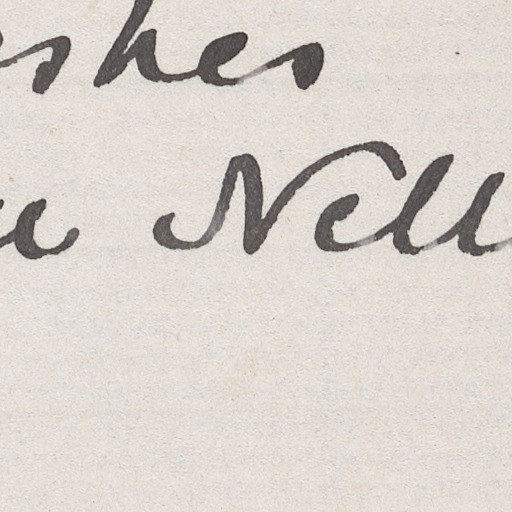 shes
Nell